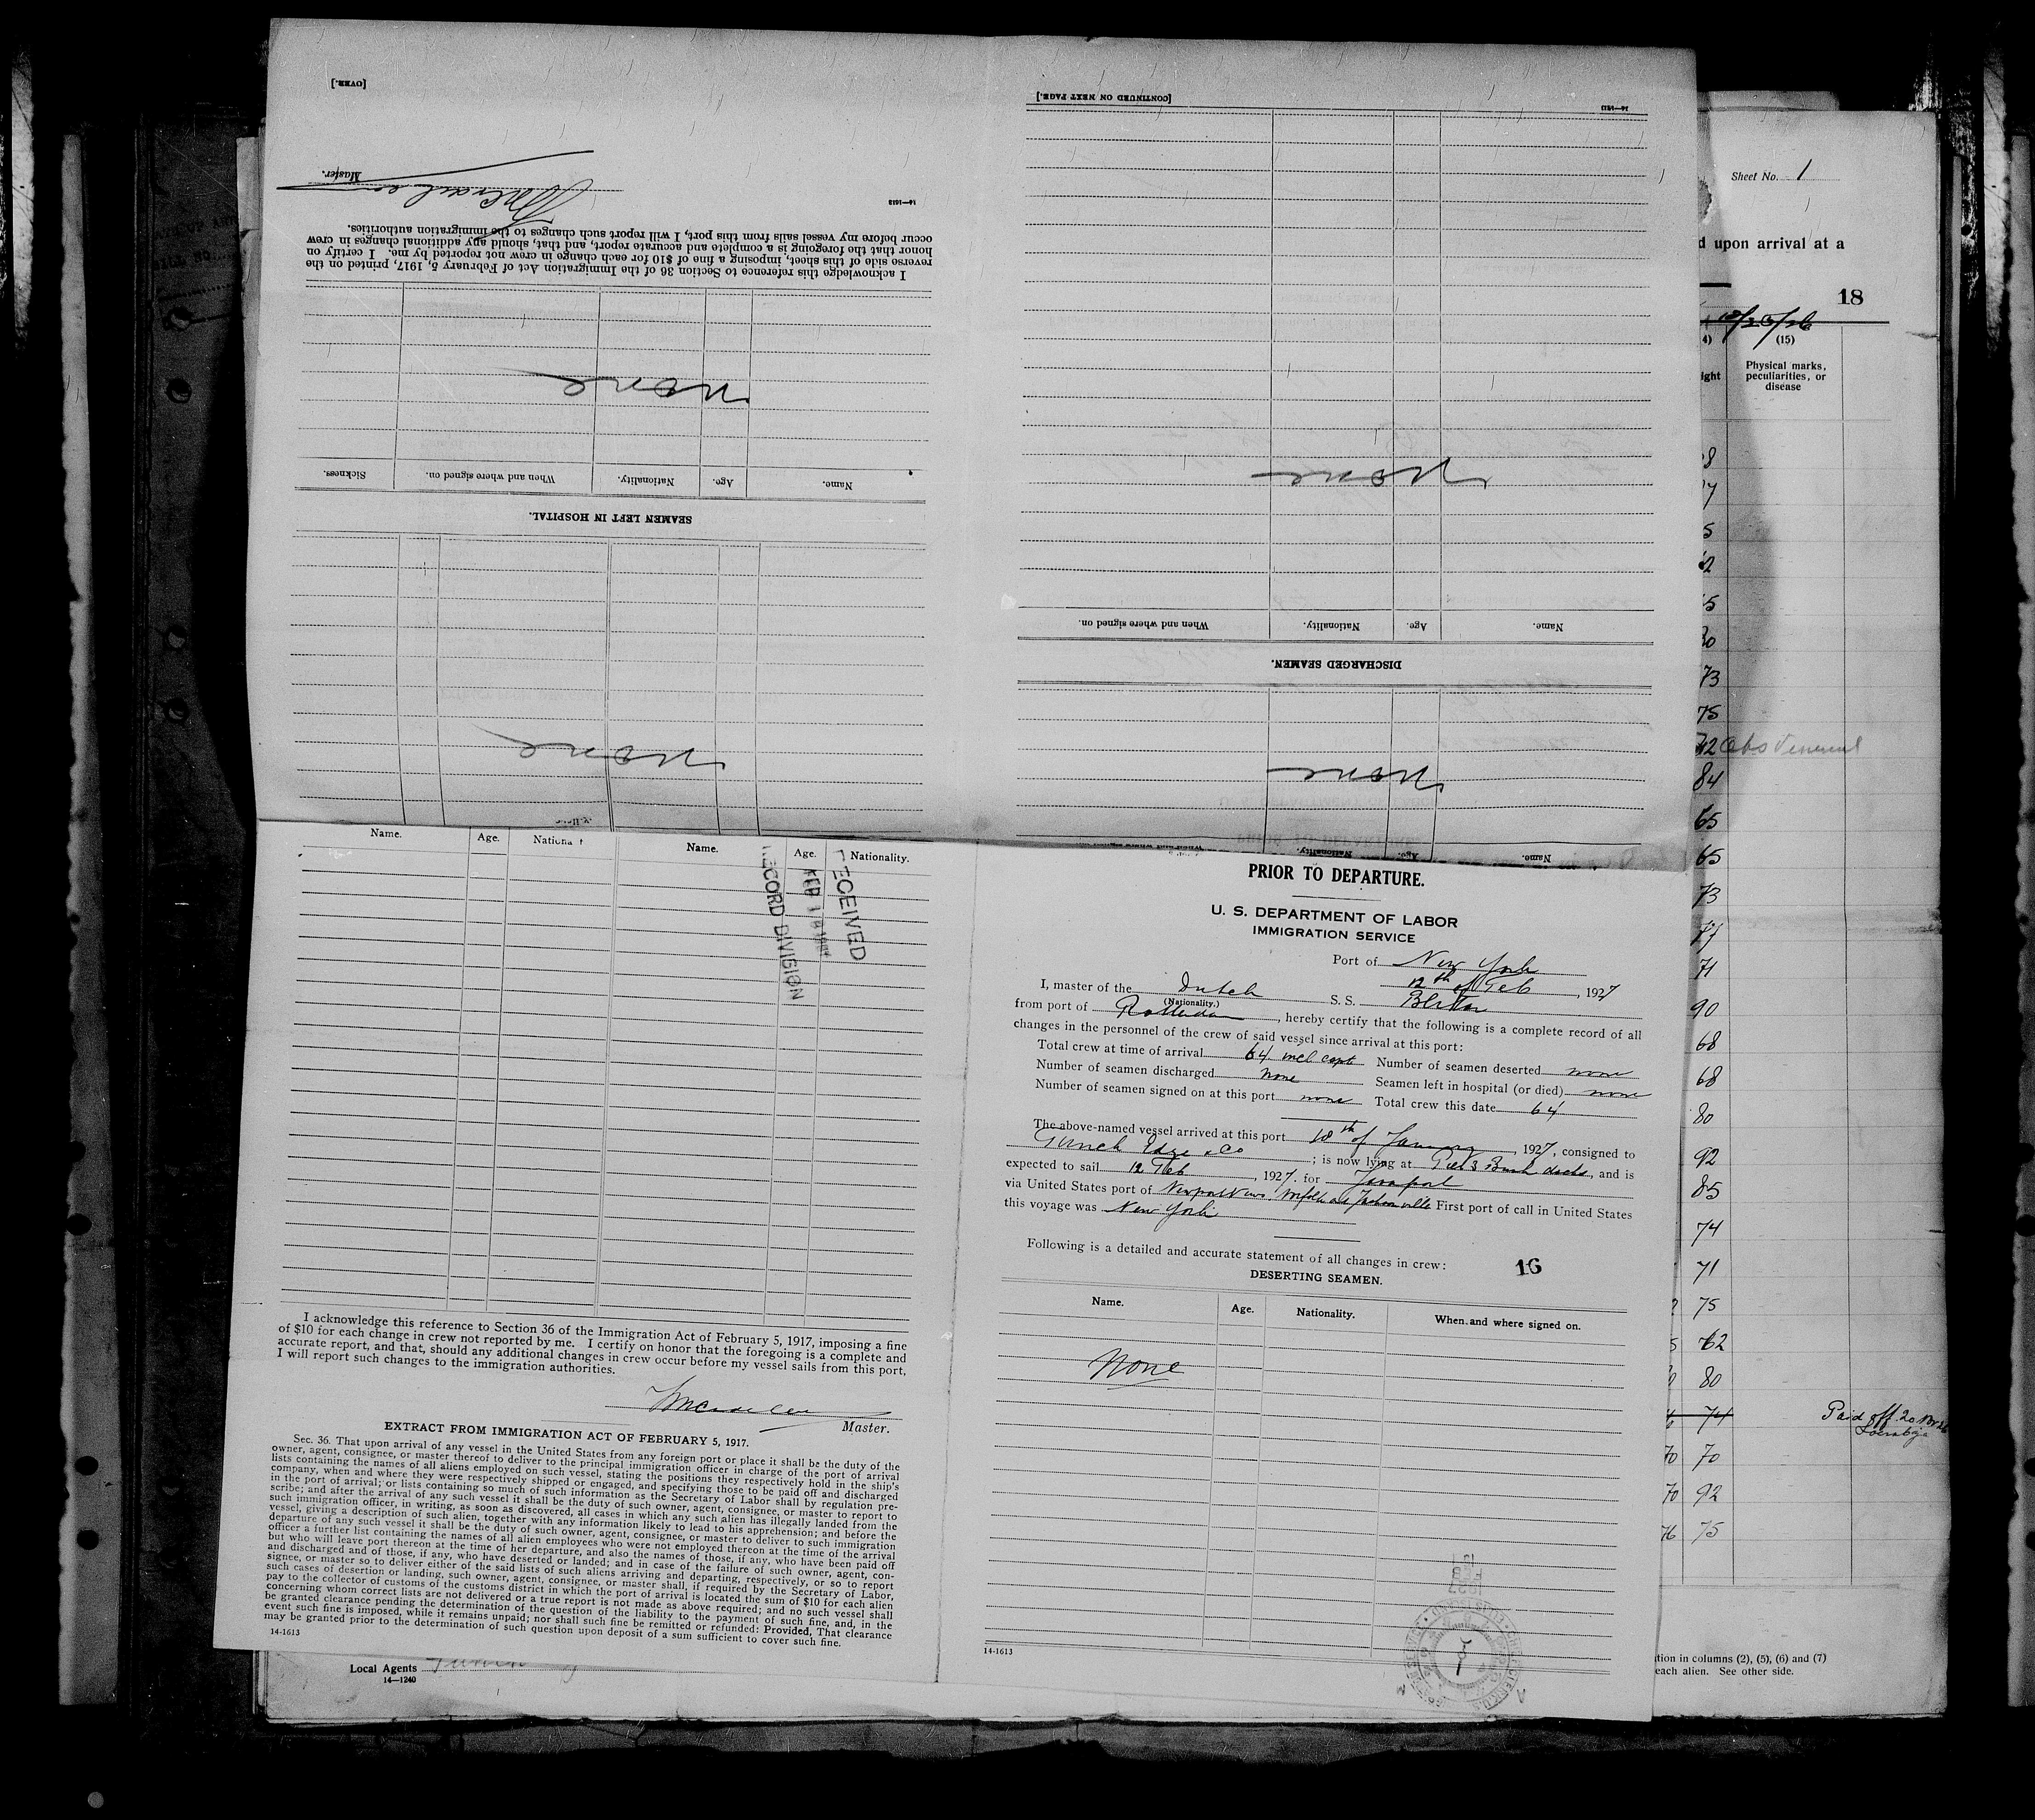 [OVER.]
Master.
14—1613
I acknowledge this reference to Section 36 of the Immigration Act of February 5, 1917, printed on the
reverse side of this sheet, imposing a fine of $10 for each change in crew not reported by me. I certify on
honor that the foregoing is a complete and accurate report, and that, should any additional changes in crew
occur before my vessel sails from this port, I will report such changes to the immigration authorities.
None
Name. Age. Nationality. When and where signed on. Sickness.
SEAMEN LEFT IN HOSPITAL.
None
[CONTINUED ON NEXT PAGE.]
14—1613
None
Name. Age. Nationality. When and where signed on.
DISCHARGED SEAMEN.
None
Name. Age. Nationality. When and where signed on.
Name. Age. Name. Age. Nationality.
RECEIVED
RECORD DIVISION
I acknowledge this reference to Section 36 of the Immigration Act of February 5, 1917, imposing a fine
of $10 for each change in crew not reported by me. I certify on honor that the foregoing is a complete and
accurate report, and that, should any additional changes in crew occur before my vessel sails from this port,
I will report such changes to the immigration authorities.
Master.
EXTRACT FROM IMMIGRATION ACT OF FEBRUARY 5, 1917.
Sec. 36. That upon arrival of any vessel in the United States from any foreign port or place it shall be the duty of the
owner, agent, consignee, or master thereof to deliver to the principal immigration officer in charge of the port of arrival
lists containing the names of all aliens employed on such vessel, stating the positions they respectively hold in the ship's
company, when and where they were respectively shipped or engaged, and specifying those to be paid off and discharged
in the port of arrival; or lists containing so much of such information as the Secretary of Labor shall by regulation pre-
scribe; and after the arrival of any such vessel it shall be the duty of such owner, agent, consignee, or master to report to
such immigration officer, in writing, as soon as discovered, all cases in which any such alien has illegally landed from the
vessel, giving a description of such alien, together with any information likely to lead to his apprehension; and before the
departure of any such vessel it shall be the duty of such owner, agent, consignee, or master to deliver to such immigration
officer a further list containing the names of all alien employees who were not employed thereon at the time of the arrival
but who will leave port thereon at the time of her departure, and also the names of those, if any, who have been paid off
and discharged and of those, if any, who have deserted or landed; and in case of the failure of such owner, agent, con-
signee, or master so to deliver either of the said lists of such aliens arriving and departing, respectively, or so to report
such cases of desertion or landing, such owner, agent, consignee, or master shall, if required by the Secretary of Labor,
pay to the collector of customs of the customs district in which the port of arrival is located the sum of $10 for each alien
concerning whom correct lists are not delivered or a true report is not made as above required; and no such vessel shall
be granted clearance pending the determination of the question of the liability to the payment of such fine, and, in the
event such fine is imposed, while it remains unpaid; nor shall such fine be remitted or refunded: Provided, That clearance
may be granted prior to the determination of such question upon deposit of a sum sufficient to cover such fine.
14-1613
Local Agents
14—1240
PRIOR TO DEPARTURE.
U. S. DEPARTMENT OF LABOR
IMMIGRATION SERVICE
Port of New York
12th of Feb, 1927
I, master of the Dutch S. S. Blitar
(Nationality.)
from port of Rotterdam, hereby certify that the following is a complete record of all
changes in the personnel of the crew of said vessel since arrival at this port:
Total crew at time of arrival 64 incl capt Number of seamen deserted none
Number of seamen discharged none Seamen left in hospital (or died) none
Number of seamen signed on at this port none Total crew this date 64
The above-named vessel arrived at this port of January, 1927, consigned to
Funch Edye & Co; is now lying at Pier 3 Bush docks, and is
expected to sail 12 Feb, 1927. for
via United States port of Newport News Norfolk and Jacksonville First port of call in United States
this voyage was New York
Following is a detailed and accurate statement of all changes in crew:
16
DESERTING SEAMEN.
Name. Age. Nationality. When and where signed on.
None
14-1613
Sheet No. 1
d upon arrival at a
18
(15)
Physical marks,
peculiarities, or
disease
73
75
84
65
65
73
77
71
90
68
68
80
92
85
74
71
75
62
80
74 Paid off 20
70 70
70 92
76 75
tion in columns (2), (5), (6) and (7)
each alien. See other side.